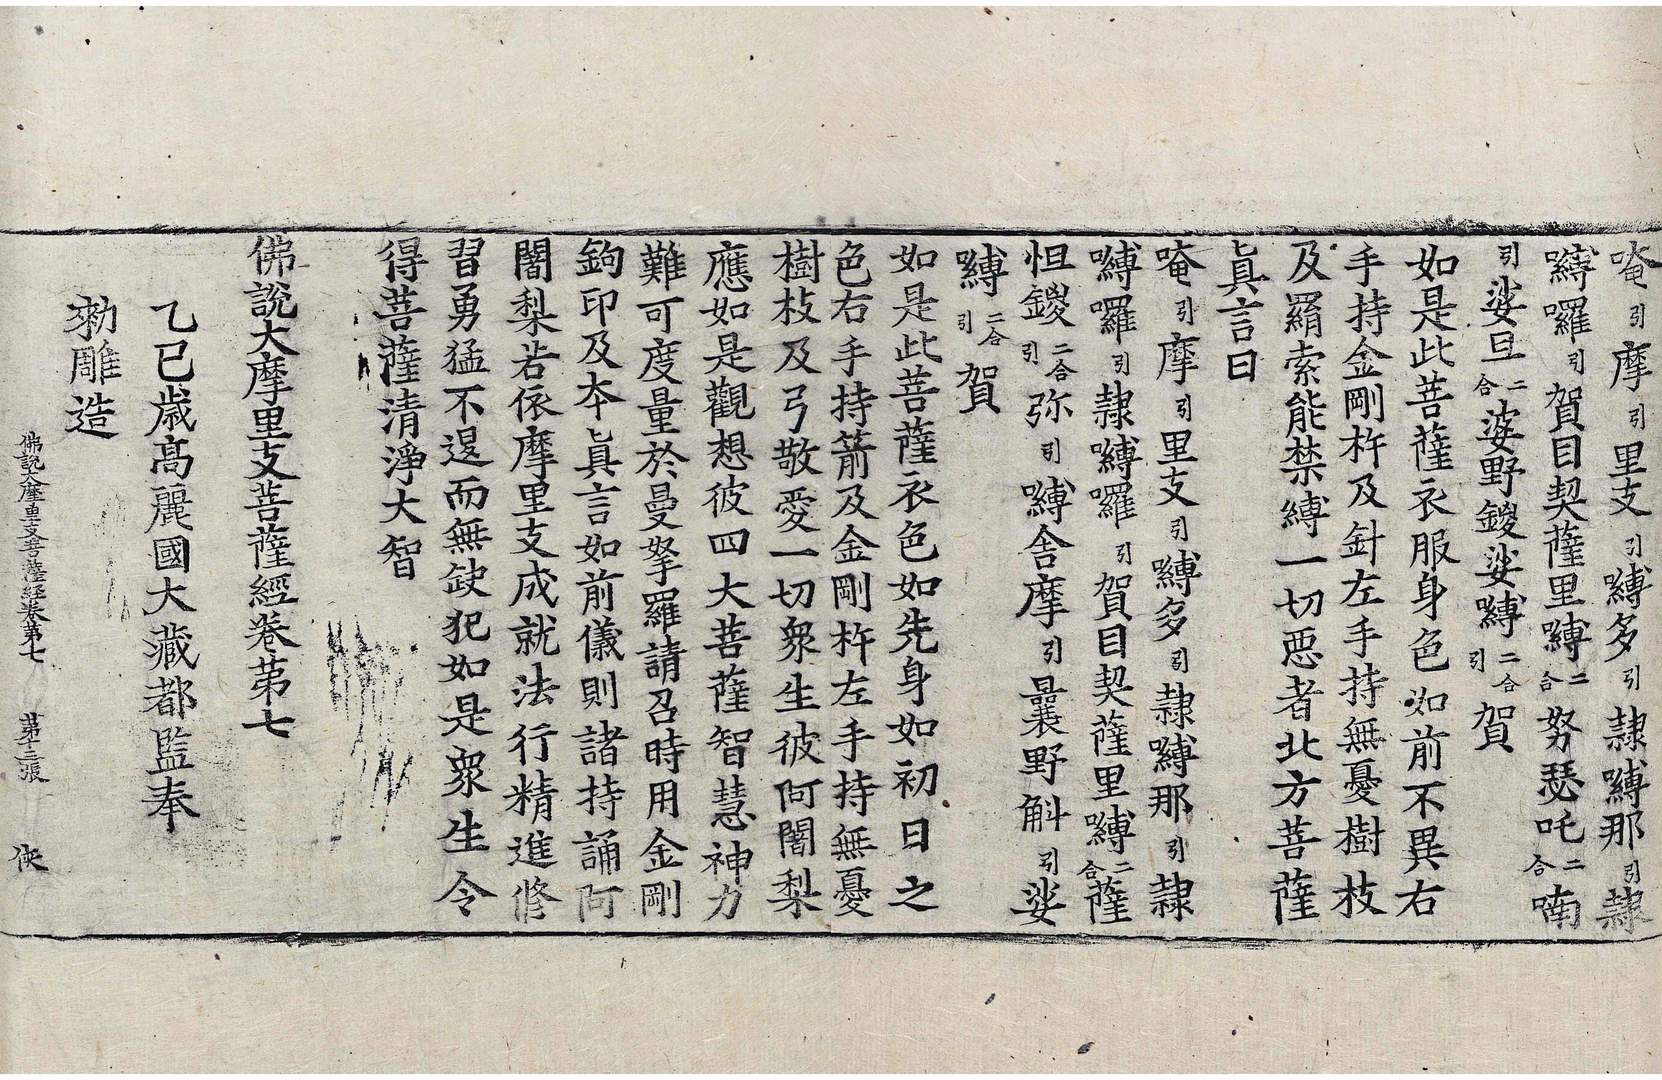 唵引摩引里支引嚩多引隷嚩那引隷
嚩囉引賀目契薩里嚩二合努瑟吒二合喃
引娑旦二合婆野鑁娑嚩二合引賀
如是此菩薩衣服身色如前不異右
手持金剛杵及針左手持無憂樹枝
及羂索能禁縛一切惡者北方菩薩
眞言曰
唵引摩引里支引嚩多引隷嚩那引隷
嚩囉引隷嚩囉引賀目契薩里嚩二合薩
怛鑁二合引弥引嚩舍摩引曩野斛引娑
嚩二合引賀
如是此菩薩衣色如先身如初日之
色右手持箭及金剛杵左手持無憂
樹枝及弓敬愛一切衆生彼阿闍梨
應如是觀想彼四大菩薩智慧神力
難可度量於曼拏羅請召時用金剛
鉤印及本眞言如前儀則諸持誦阿
闍梨若依摩里支成就法行精進修
習勇猛不退而無缺犯如是衆生令
得菩薩清淨大智
佛說大摩里支菩薩經卷第七
乙巳歲高麗國大藏都監奉
勑雕造
佛說大摩里支菩薩經卷第七 第十三張 俠